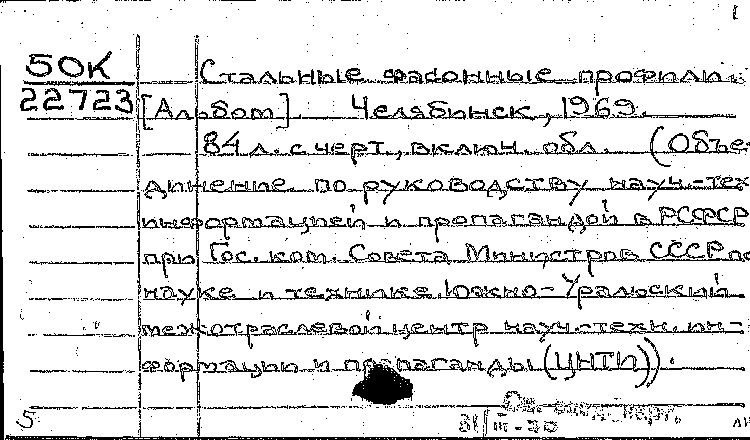 50К Стальные фасонные профили.
22723 [Альбом]. Челябинск, 1969.
84 л. с черт., включ. обл. (Объе-
динение по руководству науч.-тех
информацией и пропагандой в РСФСР
при Гос. ком. Совета Министров СССР по
науке и технике. Южно-Уральский
межотраслевой центр науч.-техн. ин-
формации и пропаганды (ЦНТИ)).
5